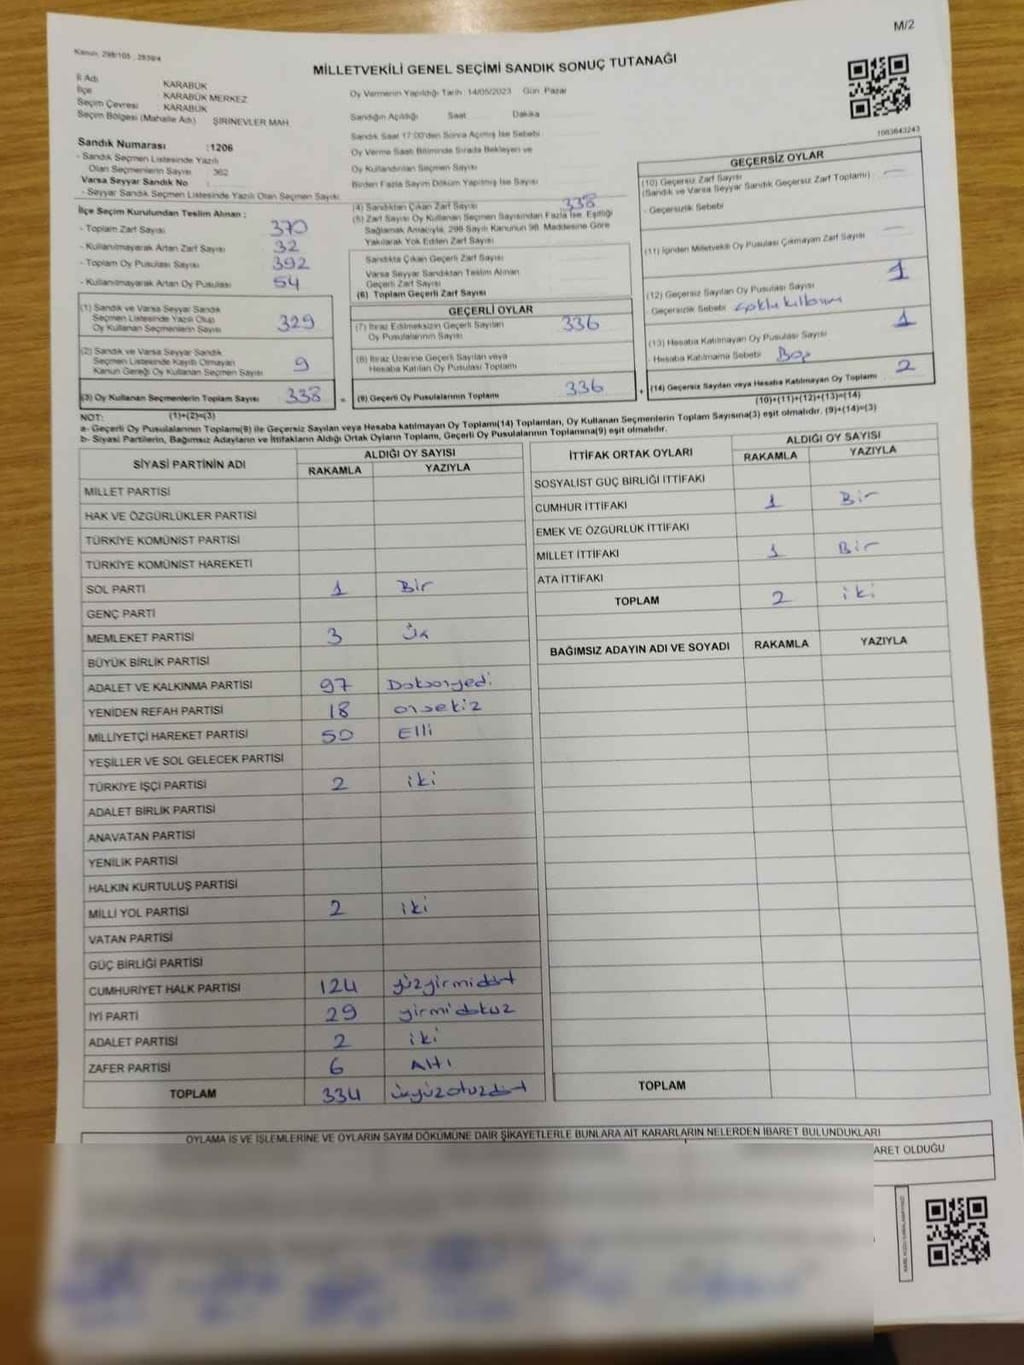 M/2
Kanun: 298/105 , 2839/4
MİLLETVEKİLİ GENEL SEÇİMİ SANDIK SONUÇ TUTANAĞI
İl Adı : KARABÜK
İlçe : KARABÜK MERKEZ
Seçim Çevresi : KARABÜK
Seçim Bölgesi (Mahalle Adı) : ŞİRİNEVLER MAH
Sandık Numarası :1206
- Sandık Seçmen Listesinde Yazılı
Olan Seçmenlerin Sayısı 362
Varsa Seyyar Sandık No :
- Seyyar Sandık Seçmen Listesinde Yazılı Olan Seçmen Sayısı:
Oy Vermenin Yapıldığı Tarih :14/05/2023 Gün :Pazar
Sandığın Açıldığı Saat Dakika
Sandık Saat 17:00'den Sonra Açılmış İse Sebebi
Oy Verme Saati Bitiminde Sırada Bekleyen ve
Oy Kullandırılan Seçmen Sayısı
Birden Fazla Sayım Döküm Yapılmış İse Sayısı
1083643243
İlçe Seçim Kurulundan Teslim Alınan :
- Toplam Zarf Sayısı 370
- Kullanılmayarak Artan Zarf Sayısı 32
- Toplam Oy Pusulası Sayısı 392
- Kullanılmayarak Artan Oy Pusulası 54
(1) Sandık ve Varsa Seyyar Sandık
Seçmen Listesinde Yazılı Olup
Oy Kullanan Seçmenlerin Sayısı 329
(2) Sandık ve Varsa Seyyar Sandık
Seçmen Listesinde Kayıtlı Olmayan
Kanun Gereği Oy Kullanan Seçmen Sayısı 9
(3) Oy Kullanan Seçmenlerin Toplam Sayısı 338 =
(1)+(2)=(3)
(4) Sandıktan Çıkan Zarf Sayısı 338
(5) Zarf Sayısı Oy Kullanan Seçmen Sayısından Fazla İse, Eşitliği
Sağlamak Amacıyla, 298 Sayılı Kanunun 98. Maddesine Göre
Yakılarak Yok Edilen Zarf Sayısı
Sandıkta Çıkan Geçerli Zarf Sayısı
Varsa Seyyar Sandıktan Teslim Alınan
Geçerli Zarf Sayısı
(6) Toplam Geçerli Zarf Sayısı
GEÇERLİ OYLAR
(7) İtiraz Edilmeksizin Geçerli Sayılan
Oy Pusulalarının Sayısı 336
(8) İtiraz Üzerine Geçerli Sayılan veya
Hesaba Katılan Oy Pusulası Toplamı
(9) Geçerli Oy Pusulalarının Toplamı 336 +
GEÇERSİZ OYLAR
(10) Geçersiz Zarf Sayısı
(Sandık ve Varsa Seyyar Sandık Geçersiz Zarf Toplamı)
- Geçersizlik Sebebi
(11) İçinden Milletvekili Oy Pusulası Çıkmayan Zarf Sayısı
(12) Geçersiz Sayılan Oy Pusulası Sayısı 1
Geçersizlik Sebebi
(13) Hesaba Katılmayan Oy Pusulası Sayısı 1
- Hesaba Katılmama Sebebi Boş
(14) Geçersiz Sayılan veya Hesaba Katılmayan Oy Toplamı 2
(10)+(11)+(12)+(13)=(14)
NOT:
a- Geçerli Oy Pusulalarının Toplamı(9) ile Geçersiz Sayılan veya Hesaba katılmayan Oy Toplamı(14) Toplamları, Oy Kullanan Seçmenlerin Toplam Sayısına(3) eşit olmalıdır. (9)+(14)=(3)
b- Siyasi Partilerin, Bağımsız Adayların ve İttifakların Aldığı Ortak Oyların Toplamı, Geçerli Oy Pusulalarının Toplamına(9) eşit olmalıdır.
SİYASİ PARTİNİN ADI ALDIĞI OY SAYISI
RAKAMLA YAZIYLA
MİLLET PARTİSİ
HAK VE ÖZGÜRLÜKLER PARTİSİ
TÜRKİYE KOMÜNİST PARTİSİ
TÜRKİYE KOMÜNİST HAREKETİ
SOL PARTİ 1 Bir
GENÇ PARTİ
MEMLEKET PARTİSİ 3 Üç
BÜYÜK BİRLİK PARTİSİ
ADALET VE KALKINMA PARTİSİ 97 Doksanyedi
YENİDEN REFAH PARTİSİ 18 onsekiz
MİLLİYETÇİ HAREKET PARTİSİ 50 Elli
YEŞİLLER VE SOL GELECEK PARTİSİ
TÜRKİYE İŞÇİ PARTİSİ 2 iki
ADALET BİRLİK PARTİSİ
ANAVATAN PARTİSİ
YENİLİK PARTİSİ
HALKIN KURTULUŞ PARTİSİ
MİLLİ YOL PARTİSİ 2 iki
VATAN PARTİSİ
GÜÇ BİRLİĞİ PARTİSİ
CUMHURİYET HALK PARTİSİ 124 yüzyirmidört
İYİ PARTİ 29 yirmidokuz
ADALET PARTİSİ 2 iki
ZAFER PARTİSİ 6 Altı
TOPLAM 334 üçyüzotuzdört
İTTİFAK ORTAK OYLARI ALDIĞI OY SAYISI
RAKAMLA YAZIYLA
SOSYALİST GÜÇ BİRLİĞİ İTTİFAKI
CUMHUR İTTİFAKI 1 Bir
EMEK VE ÖZGÜRLÜK İTTİFAKI
MİLLET İTTİFAKI 1 Bir
ATA İTTİFAKI
TOPLAM 2 iki
BAĞIMSIZ ADAYIN ADI VE SOYADI RAKAMLA YAZIYLA
TOPLAM
OYLAMA İŞ VE İŞLEMLERİNE VE OYLARIN SAYIM DÖKÜMÜNE DAİR ŞİKAYETLERLE BUNLARA AİT KARARLARIN NELERDEN İBARET BULUNDUKLARI
ARET OLDUĞU